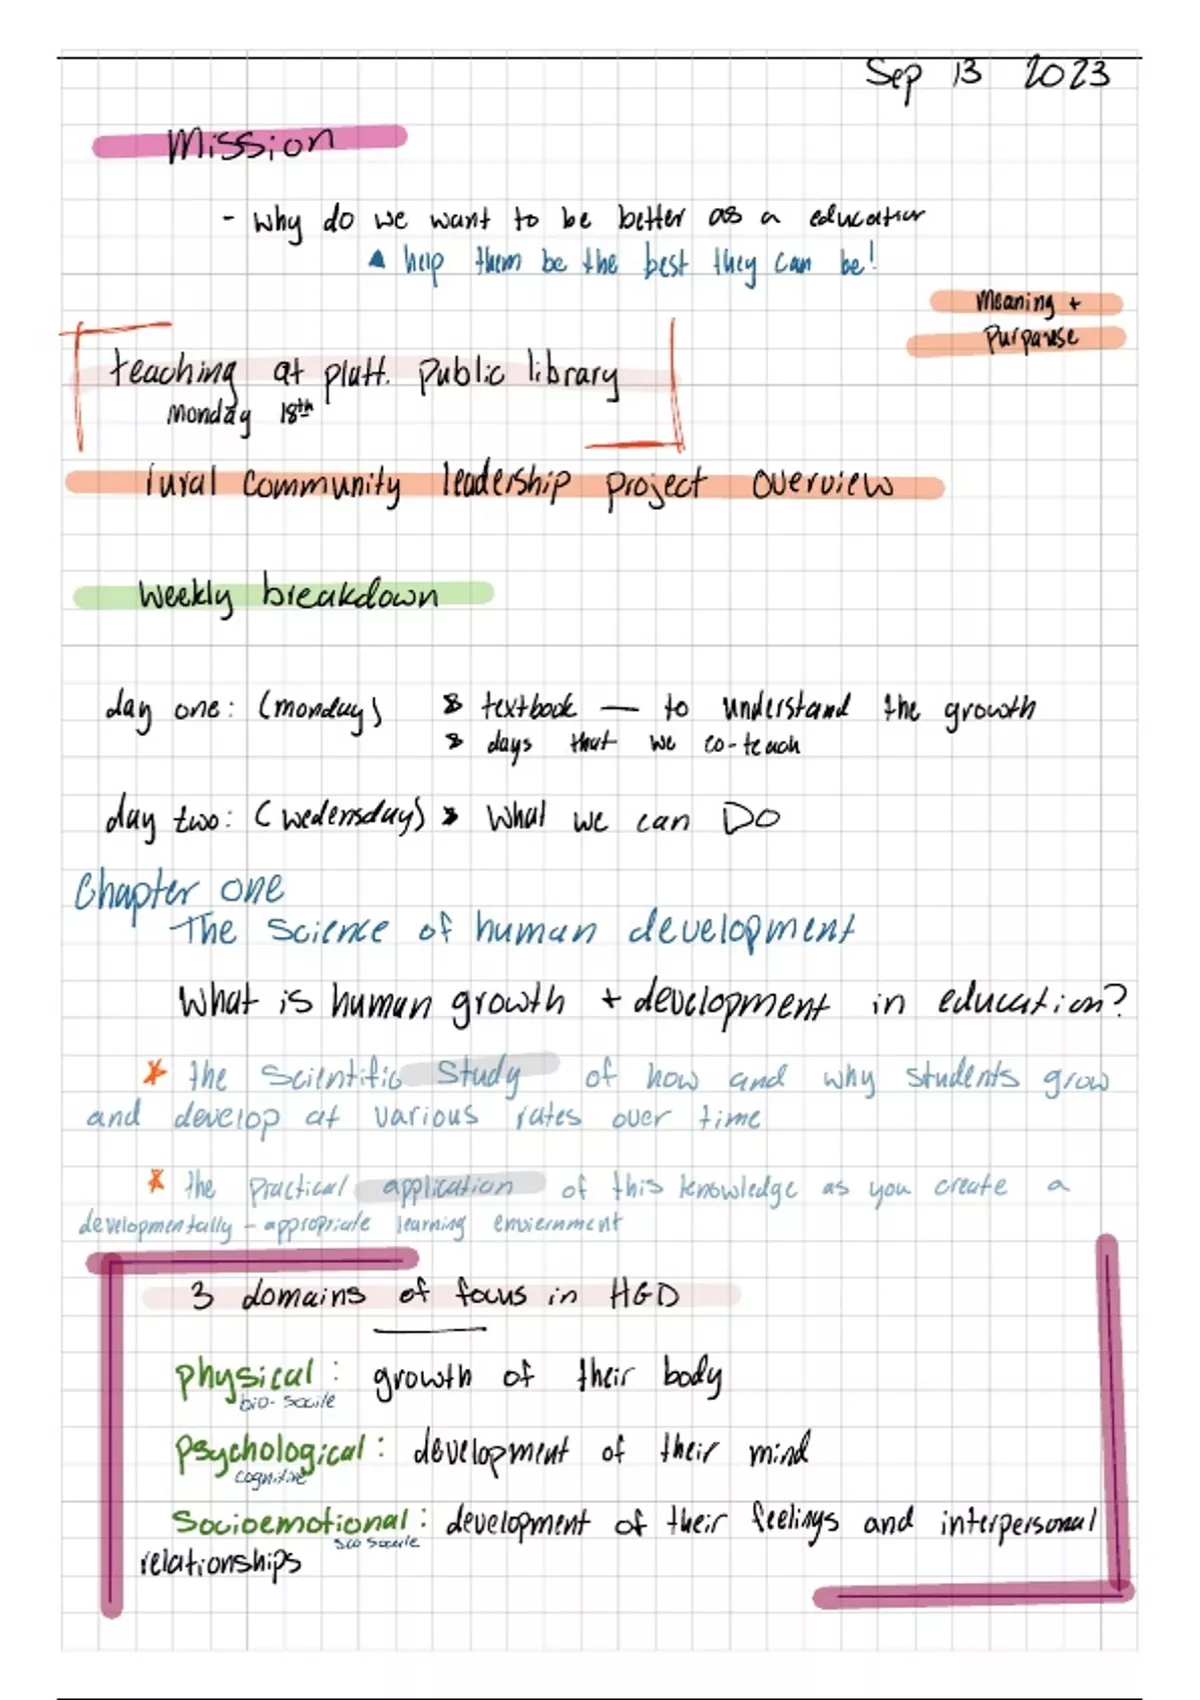 Sep 13 2023
Mission
- Why do we want to be better as a educator
help them be the best they can be!
Meaning +
Purpouse
teaching at platt. Public library
Monday 18th
rural Community leadership project overview
Weekly breakdown
day one: (monday) textbook — to understand the growth
days that we co-teach
day two: (wedensday) What we can DO
Chapter one
The Science of human development
What is human growth + development in education?
* the Scientific Study of how and why students grow
and develop at various rates over time
* the practical application of this knowledge as you create a
developmentally-appropriate learning enviernment
3 domains of focus in HGD
physical: growth of their body
bio-socile
Psychological: development of their mind
cognitive
Socioemotional: development of their feelings and interpersonal
socile
relationships